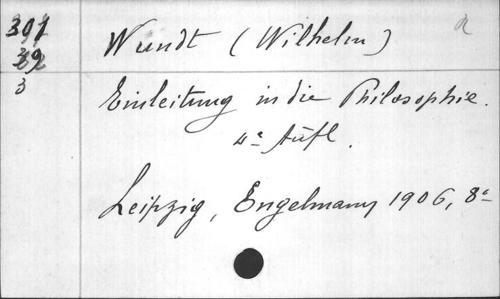 391 Wundt (Wilhelm) a
39
3 Einleitung in die Philosophie.
4e Aufl.
Leipzig, Engelmann 1906, 8°